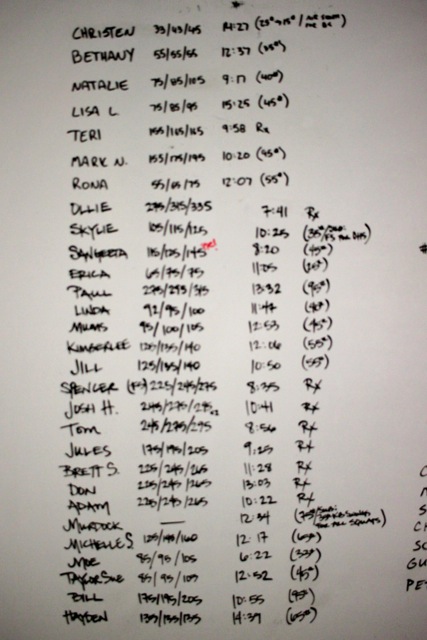 CHRISTEN 33/43/45 14:27 (25#→15#/
BETHANY 55/55/55 12:37 (35#)
NATALIE 75/85/105 9:17 (40#)
LISA L 75/85/95 15:25 (45#)
TERI 155/165/165 9:58 Rx
MARK N. 155/175/195 10:20 (95#)
RONA 55/65/75 12:07 (55#)
OLLIE 275/315/335 7:41 Rx
SKYLIE 105/115/125 10:25
SANGEETA 115/125/145 PR! 8:20 (45#)
ERICA 65/75/75 11:05
PAUL 275/295/315 13:32 (95#)
LINDA 92/95/100 11:47
MIMMS 95/100/105 12:53 (45#)
KIMBERLEE 120/135/140 12:06 (55#)
JILL 125/135/140 10:50 (55#)
SPENCER (FS) 225/245/275 8:35 Rx
JOSH H. 245/275/295 10:41 Rx
TOM 245/275/295 8:56 Rx
JULES 175/195/205 9:25 Rx
BRETT S. 225/245/265 11:28 Rx
DON 225/245/265 13:03 Rx
ADAM 225/245/265 10:22 Rx
MURDOCK — 12:34
MICHELLE S. 120/140/160 12:17 (65#)
MOE 85/95/105 6:22 (33#)
TAYLOR SUE 85/95/105 12:52 (45#)
BILL 175/195/205 10:55 (95#)
HAYDEN 135/135/135 14:39 (65#)